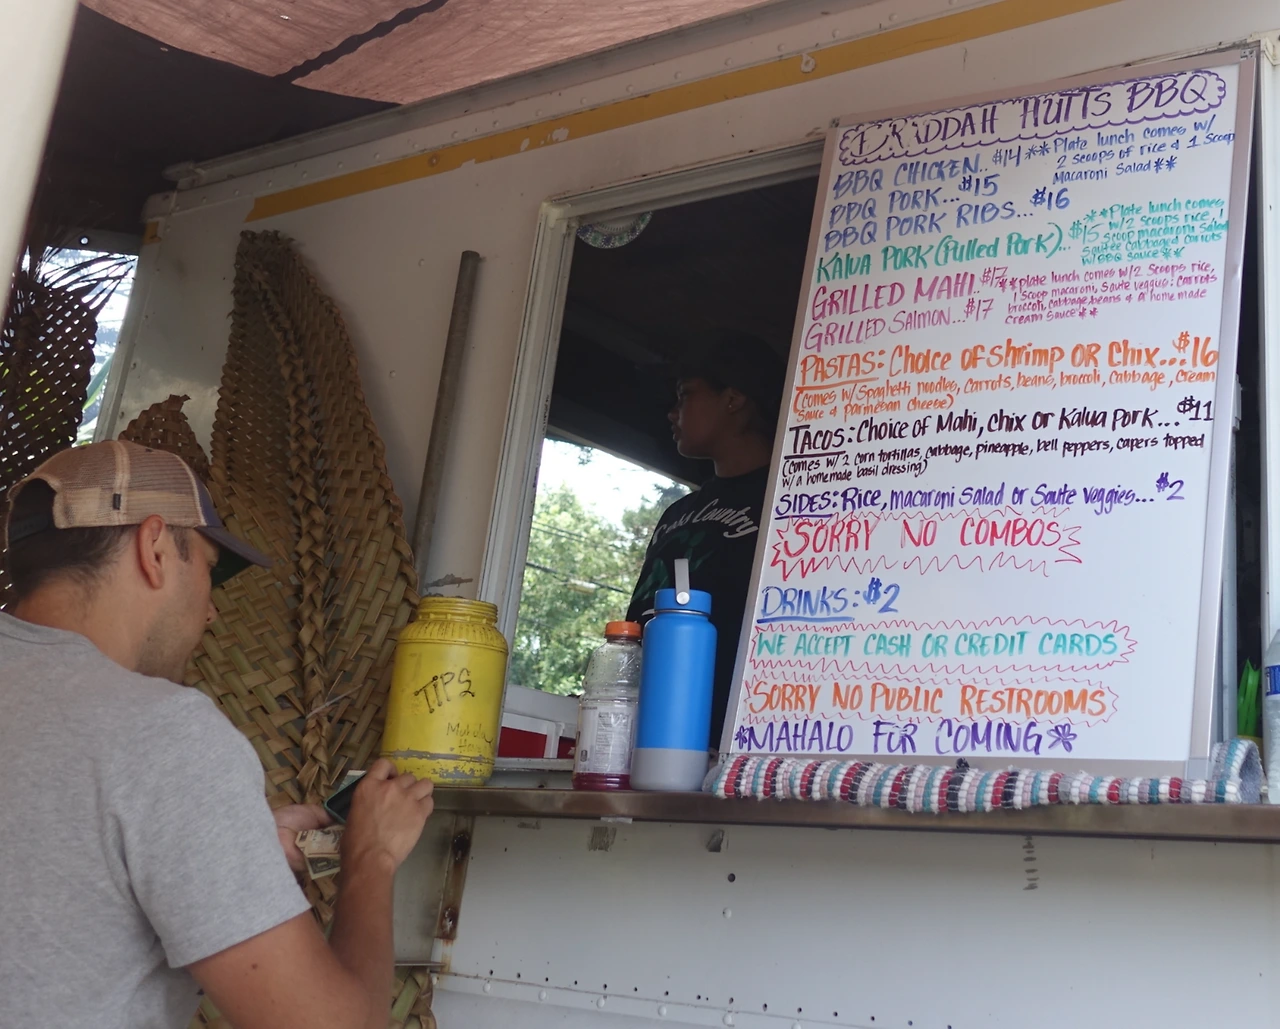 BRADDAH HUTTS BBQ
BBQ CHICKEN..$14 **Plate lunch comes w/
2 scoops of rice & 1 Scoop
Macaroni Salad**
BBQ PORK...$15
BBQ PORK RIBS...$16
KALUA PORK (Pulled Pork)...$15 **Plate lunch comes
w/2 Scoops rice, 1
Scoop macaroni Salad
Sautee cabbage & carrots
w/BBQ sauce**
GRILLED MAHI..$17 **plate lunch comes w/2 Scoops rice,
1 scoop macaroni, Saute veggies: carrots
broccoli, cabbage, beans & a homemade
Cream Sauce**
GRILLED SALMON...$17
PASTAS: Choice OF Shrimp OR Chix...$16
(comes w/Spaghetti noodles, carrots, beans, broccoli, cabbage, cream
sauce & parmesan cheese)
TACOS: Choice of Mahi, chix or Kalua Pork...$11
(comes w/ 2 corn tortillas, cabbage, pineapple, bell peppers, capers topped
w/a homemade basil dressing)
SIDES: Rice, macaroni Salad or Saute veggies...$2
SORRY NO COMBOS
DRINKS: $2
WE ACCEPT CASH OR CREDIT CARDS
SORRY NO PUBLIC RESTROOMS
*MAHALO FOR COMING*
Cross Country
TIPS